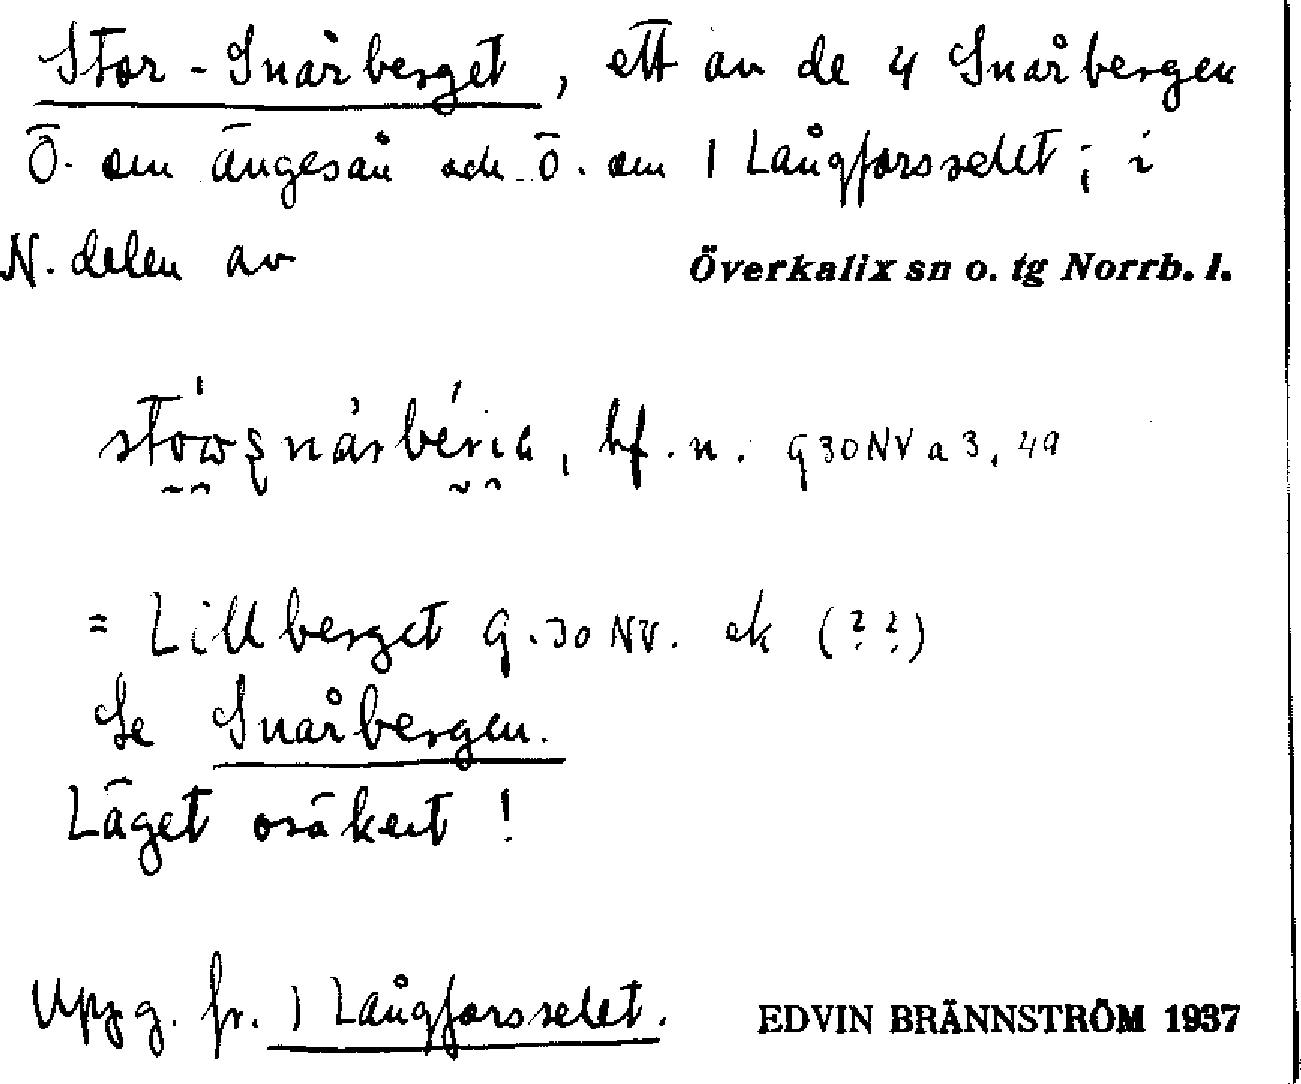 Stor-Snårberget, ett av de 4 Snårbergen
Ö. om Ängesån och Ö. om 1 Långforsselet; i
N. delen av Överkalix sn o. tg Norrb. l.
hf. n. 930NVa3, 49
= Lillberget 9.30 NV. ek (??)
Se Snårbergen.
Läget osäkert!
Uppg. fr. 1 Långforsselet. EDVIN BRÄNNSTRÖM 1937